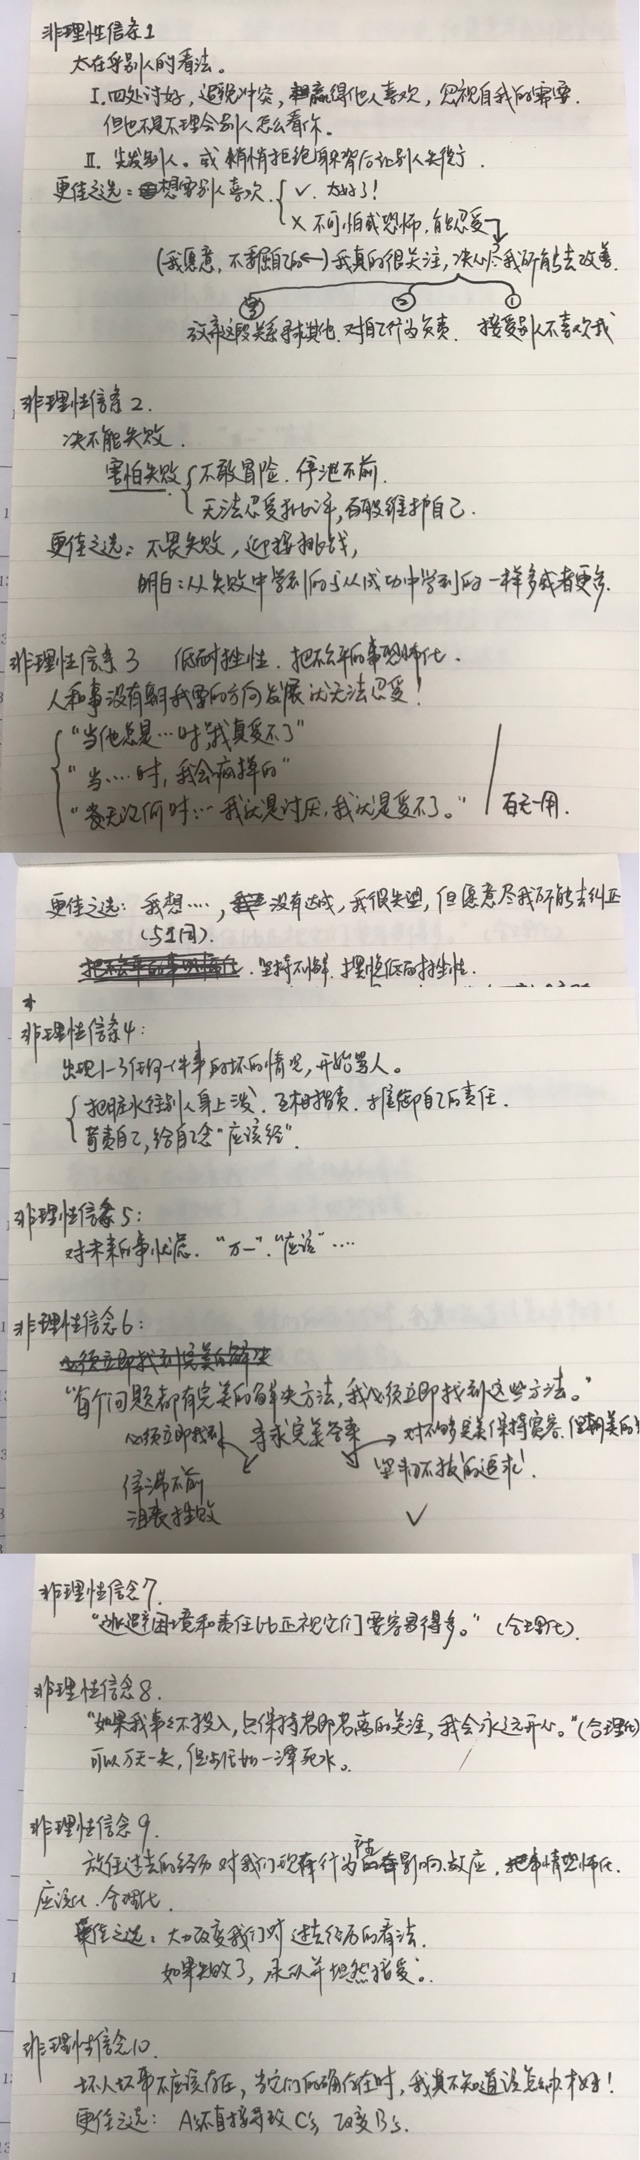 非理性信条1
太在乎别人的看法。
I.四处讨好,逃避冲突,赢得他人喜欢,忽视自我的需要.
但也不是不理会别人怎么看你。
II.别人。或悄悄拒绝取背后让别人失望了.
更佳之选:想要别人喜欢.
√.太好了!
×不可怕或恐怖,能忍受
(我愿意,不委屈自己的←)我真的很关注,决心尽我所能去改善.
③ ② ①
放弃这段关系寻求其他.对自己行为负责.接受别人不喜欢我
非理性信条2.
决不能失败.
害怕失败
不敢冒险.停滞不前.
无法忍受批评,百般维护自己.
更佳之选:不畏失败,迎接挑战,
明白:从失败中学到的与从成功中学到的一样多或者更多.
非理性信条3 低耐挫性.把不公平的事恐怖化.
人和事没有朝我要的方向发展就无法忍受!
“当他总是…时,我真受不了”
“当….时,我会疯掉的”
“我无论何时…我就是讨厌,我就是受不了。”
百无一用.
更佳之选:我想….,没有达成,我很失望,但愿意尽我所能去纠正
(与1同).
坚持不懈.摆脱低耐挫性.
非理性信条4:
出现1-3任何一件事的坏的情况,开始骂人。
把脏水往别人身上泼.互相指责.推卸自己的责任.
苛责自己,给自己念“应该经”.
非理性信条5:
对未来的事忧虑.“万一”.“应该”….
非理性信念6:
必须立即找到完美的解决
“每个问题都有完美的解决方法,我必须立即找到这些方法。”
必须立即找到 寻求完美答案 →对不够完美保持宽容.但朝美的
停滞不前 坚韧不拔的追求.
沮丧挫败 √
非理性信念7.
“逃避困境和责任比正视它们要容易得多。”(合理化).
非理性信念8.
“如果我事事不投入,只保持若即若离的关注,我会永远开心。”(合理化)
可以万无一失,但生活如一潭死水。
非理性信念9.
放任过去的经历对我们现在行为的影响.放应,把事情恐怖化.
应该化.合理化.
更佳之选:大力改变我们对过去经历的看法.
如果失败了,承认并坦然接受.
非理性信念10.
坏人坏事不应该存在,当它们的确存在时,我真不知道该怎么办才好!
更佳之选: A's不直接导致C's,改变B's.